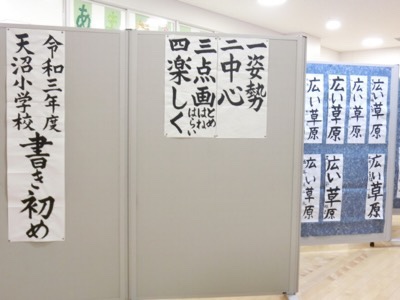 令和三年度
天沼小学校
書き初め
一姿勢
二中心
三点画とめはねはらい
四楽しく
広い草原
広い草原
広い草原
広い草原
広い草原
広い草原
広い草原
あ